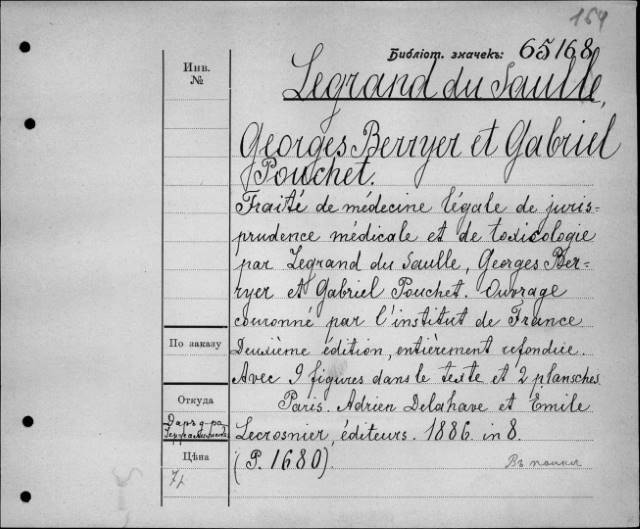 164
Библіот. значекъ: 65168
Инв.
№
Legrand du Saulle,
Georges Berryer et Gabriel
Pouchet.
Traité de médecine légale de juris=
prudence médicale et de toxicologie
par Legrand du Saulle, Georges Ber-
ryer et Gabriel Pouchet. Ouvrage
couronné par l'institut de France
По заказу
Deuxième édition, entièrement refondue.
Avec 9 figures dans le texte et 2 plansches
Откуда
Paris. Adrien Delahave et Émile
Даръ д-ра
Lecrosnier, éditeurs. 1886. in 8.
Цѣна
(P. 1680).
Въ папкѣ